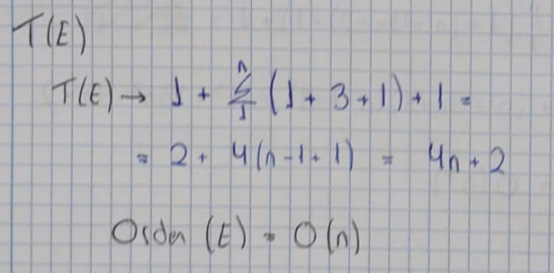 T(E)
T(E) → 1 + n Σ 1 (1 + 3 + 1) + 1 =
= 2 + 4(n-1+1) = 4n + 2
Orden (E) = O(n)